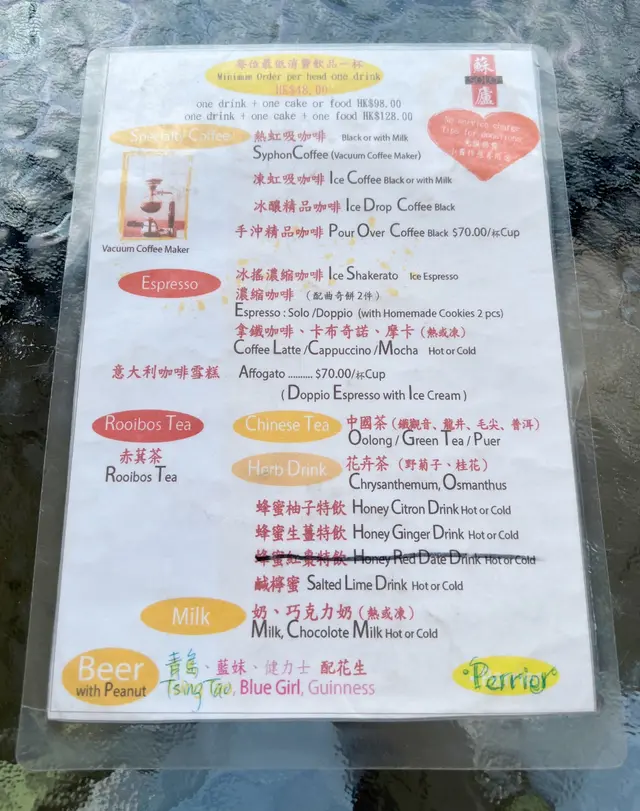 每位最低消費飲品一杯
Minimum Order per head one drink
HK$48.00
one drink + one cake or food HK$98.00
one drink + one cake + one food HK$128.00
蘇
SOLO
廬
No service charge
Tips for conditions
Specialty Coffee
熱虹吸咖啡 Black or with Milk
SyphonCoffee (Vacuum Coffee Maker)
凍虹吸咖啡 Ice Coffee Black or with Milk
冰釀精品咖啡 Ice Drop Coffee Black
手沖精品咖啡 Pour Over Coffee Black $70.00/杯Cup
Vacuum Coffee Maker
Espresso
冰搖濃縮咖啡 Ice Shakerato Ice Espresso
濃縮咖啡 (配曲奇餅2件)
Espresso : Solo /Doppio (with Homemade Cookies 2 pcs)
拿鐵咖啡、卡布奇諾、摩卡 (熱或凍)
Coffee Latte /Cappuccino /Mocha Hot or Cold
意大利咖啡雪糕 Affogato .......... $70.00/杯Cup
( Doppio Espresso with Ice Cream )
Rooibos Tea
赤萁茶
Rooibos Tea
Chinese Tea
中國茶 (鐵觀音、龍井、毛尖、普洱)
Oolong / Green Tea / Puer
Herb Drink
花卉茶 (野菊子、桂花)
Chrysanthemum, Osmanthus
蜂蜜柚子特飲 Honey Citron Drink Hot or Cold
蜂蜜生薑特飲 Honey Ginger Drink Hot or Cold
蜂蜜紅棗特飲 Honey Red Date Drink Hot or Cold
鹹檸蜜 Salted Lime Drink Hot or Cold
Milk
奶、巧克力奶 (熱或凍)
Milk, Chocolate Milk Hot or Cold
Beer
with Peanut
青島、藍妹、健力士 配花生
Tsing Tao, Blue Girl, Guinness
Perrier